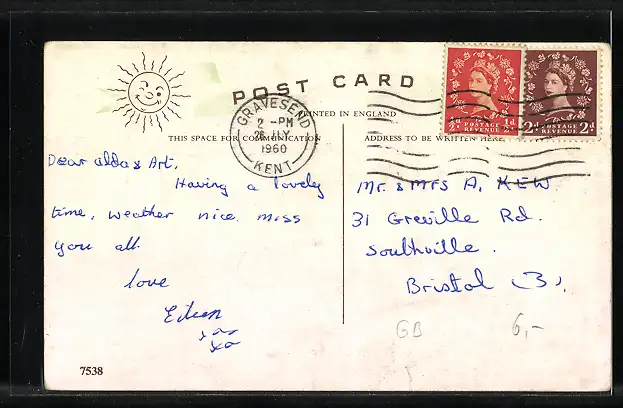 POST CARD
PRINTED IN ENGLAND
THIS SPACE FOR COMMUNICATION
ADDRESS TO BE WRITTEN HERE
GRAVESEND
2 -PM
26 JLY
1960
KENT
½d POSTAGE ½d
REVENUE
2d POSTAGE 2d
REVENUE
Dear alda & Art,
Having a lovely
time, weather nice. miss
you all.
love
Eileen
xxx
xx
Mr. & Mrs A. KEW
31 Greville Rd.
Southville.
Bristol (3).
GB
6,-
7538